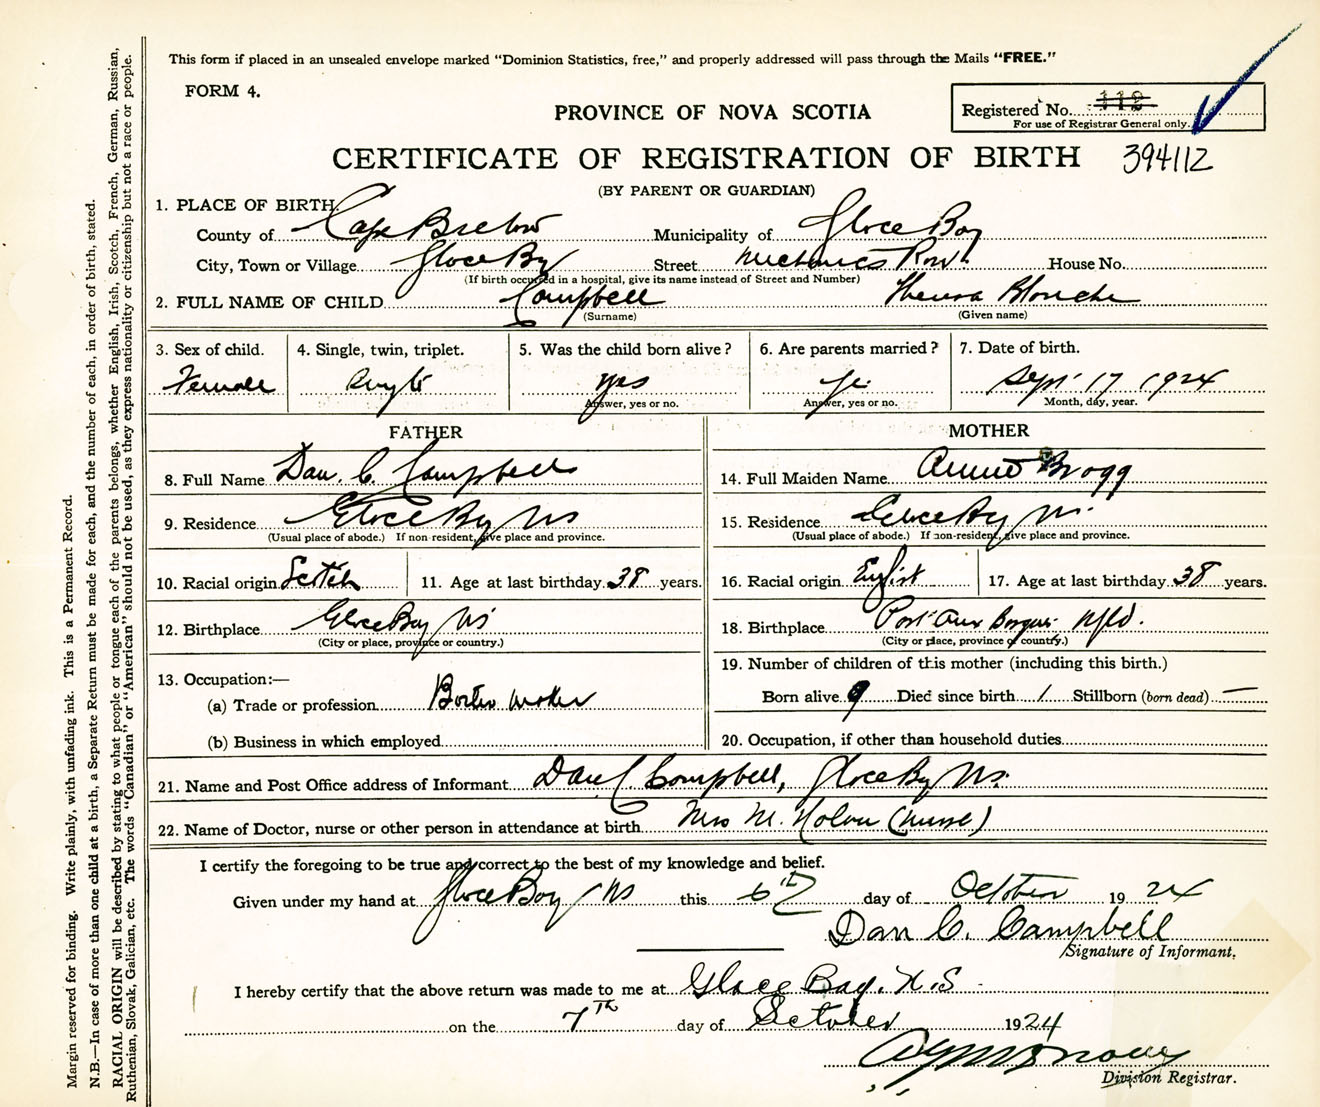 This form if placed in an unsealed envelope marked "Dominion Statistics, free," and properly addressed will pass through the Mails "FREE."
FORM 4.
Registered No. 112
For use of Registrar General only.
PROVINCE OF NOVA SCOTIA
CERTIFICATE OF REGISTRATION OF BIRTH 394112
(BY PARENT OR GUARDIAN)
1. PLACE OF BIRTH.
County of Cape Breton Municipality of Glace Bay
City, Town or Village Glace Bay Street Mechanics Row House No.
(If birth occurred in a hospital, give its name instead of Street and Number)
2. FULL NAME OF CHILD Campbell Blanche
(Surname) (Given name)
3. Sex of child. 4. Single, twin, triplet. 5. Was the child born alive? 6. Are parents married? 7. Date of birth.
Female Single yes yes Sept 17 1924
Answer, yes or no. Answer, yes or no. Month, day, year.
FATHER MOTHER
8. Full Name Dan. C. Campbell 14. Full Maiden Name Annie Bragg
9. Residence Glace Bay NS 15. Residence Glace Bay N.
(Usual place of abode.) If non-resident, give place and province. (Usual place of abode.) If non-resident, give place and province.
10. Racial origin Scotch 11. Age at last birthday 38 years. 16. Racial origin English 17. Age at last birthday 38 years.
12. Birthplace Glace Bay NS 18. Birthplace Port Aux Basques Nfld.
(City or place, province or country.) (City or place, province or country.)
13. Occupation:— 19. Number of children of this mother (including this birth.)
(a) Trade or profession Born alive 9 Died since birth 1 Stillborn (born dead) —
(b) Business in which employed 20. Occupation, if other than household duties
21. Name and Post Office address of Informant Dan C Campbell, Glace Bay NS.
22. Name of Doctor, nurse or other person in attendance at birth Mrs M. Nolan (nurse)
I certify the foregoing to be true and correct to the best of my knowledge and belief.
Given under my hand at Glace Bay NS this 6th day of October 1924
Dan C. Campbell
Signature of Informant.
I hereby certify that the above return was made to me at Glace Bay. N.S
on the 7th day of October 1924
Division Registrar.
Margin reserved for binding. Write plainly, with unfading ink. This is a Permanent Record.
N.B.—In case of more than one child at a birth, a Separate Return must be made for each, and the number of each, in order of birth, stated.
RACIAL ORIGIN will be described by stating to what people or tongue each of the parents belongs, whether English, Irish, Scotch, French, German, Russian,
Ruthenian, Slovak, Galician, etc. The words "Canadian" or "American" should not be used, as they express nationality or citizenship but not a race or people.